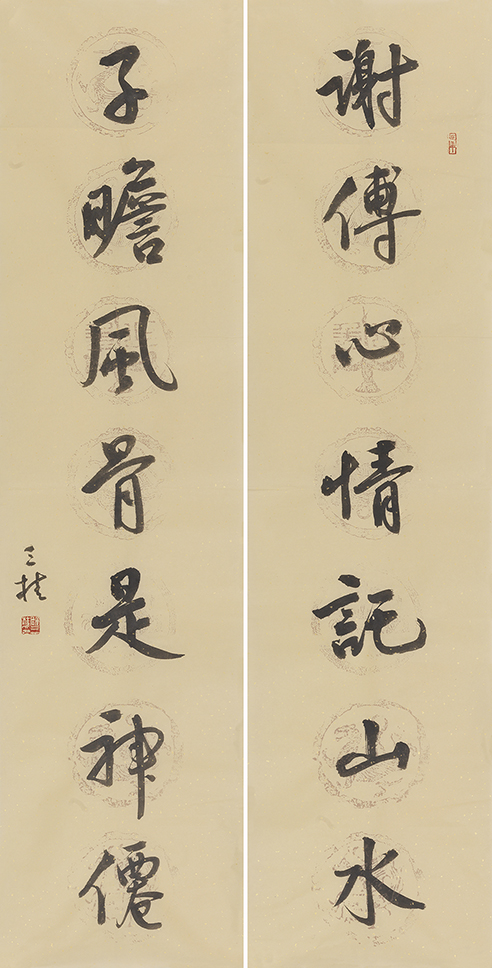 謝傅心情託山水
子瞻風骨是神僊